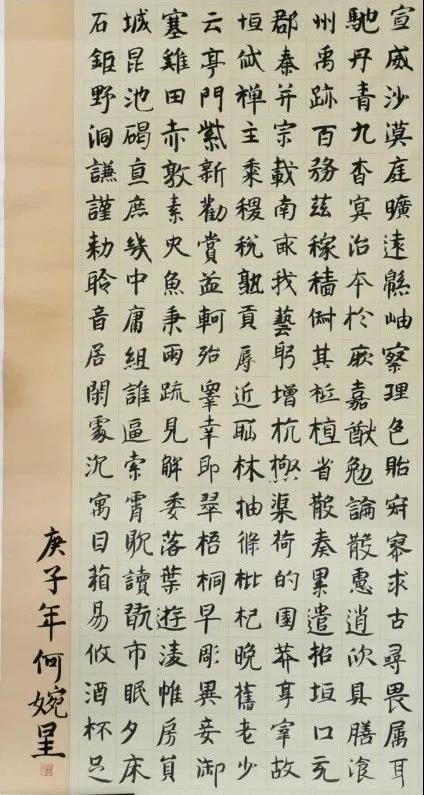 宣威沙漠庭曠遠緜岫察理色貽寂寥求古尋畏属耳
馳丹青九杳冥治本於厥嘉猷勉論散慮逍欣具膳飡
州禹跡百務茲稼穡俶其祗植省散奏累遣招垣口充
郡秦并宗載南畝我藝躬增抗極渠荷的園莽享宰故
恒岱禅主黍稷稅熟貢辱近恥林抽條枇杞晚舊老少
云亭門紫新勸賞益軻殆皋幸即翠梧桐早彫異妾御
塞雞田赤敦素史魚秉兩疏見解委落葉遊凌帷房員
城昆池碣亘庶幾中庸組誰逼索霄耽讀翫市眠夕床
石鉅野洞謙謹勅聆音居閑處沉寓目箱易攸酒杯足
庚子年何婉星